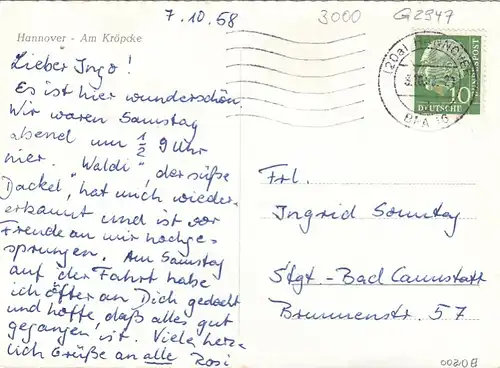 7.10.58
3000
G2947
Hannover - Am Kröpcke
Lieber Ingo!
Es ist hier wunderschön.
Wir waren Samstag
abend um 1/2 9 Uhr
hier. "Waldi", der süße
Dackel, hat mich wieder-
erkannt und ist vor
Freude an mir hochge-
sprungen. Am Samstag
auf der Fahrt habe
ich öfter an Dich gedacht
und hoffe daß alles gut
gegangen ist. Viele herz-
lich Grüße an alle Rosi
(20a) HANNOVER
BPA 16
10
DEUTSCHE
POST
Frl.
Ingrid Sonntag
Stgt - Bad Cannstatt
Brunnenstr. 57